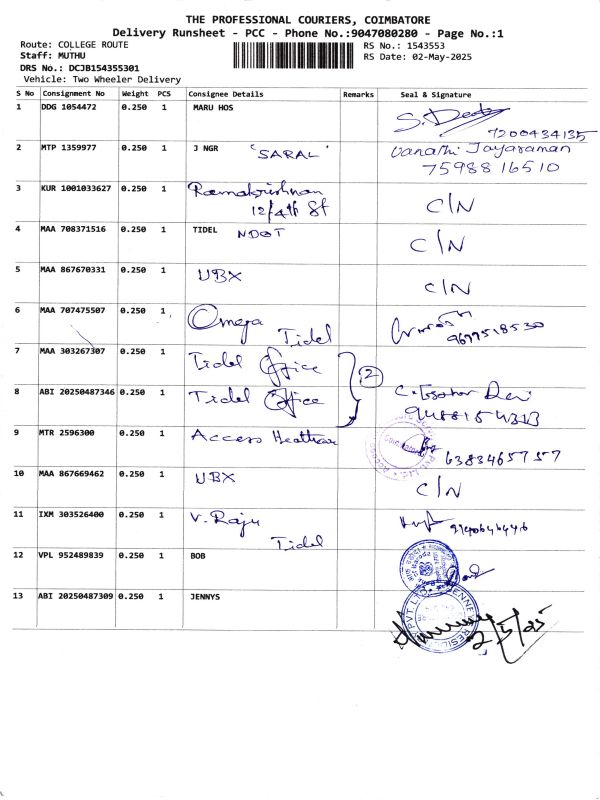 THE PROFESSIONAL COURIERS, COIMBATORE
Delivery Runsheet - PCC - Phone No.:9047080280 - Page No.:1
Route: COLLEGE ROUTE
Staff: MUTHU
DRS No.: DCJB154355301
Vehicle: Two Wheeler Delivery
RS No.: 1543553
RS Date: 02-May-2025
S No Consignment No Weight PCS Consignee Details Remarks Seal & Signature
1 DDG 1054472 0.250 1 MARU HOS
7200434135
2 MTP 1359977 0.250 1 J NGR "SARAL" Vanathi Jayaraman
7598816510
3 KUR 1001033627 0.250 1 Ramakrishnan
12/4th St C/N
4 MAA 708371516 0.250 1 TIDEL NDOT C/N
5 MAA 867670331 0.250 1 UBX C/N
6 MAA 707475507 0.250 1 Omega
Tidel 9677518530
7 MAA 303267307 0.250 1 Tidel Office
2
8 ABI 20250487346 0.250 1 Tidel Office
9 MTR 2596300 0.250 1 Access Healthcare
6383465757
10 MAA 867669462 0.250 1 UBX C/N
11 IXM 303526400 0.250 1 V. Raju
Tidel
12 VPL 952489839 0.250 1 BOB
13 ABI 20250487309 0.250 1 JENNYS
2/5/25